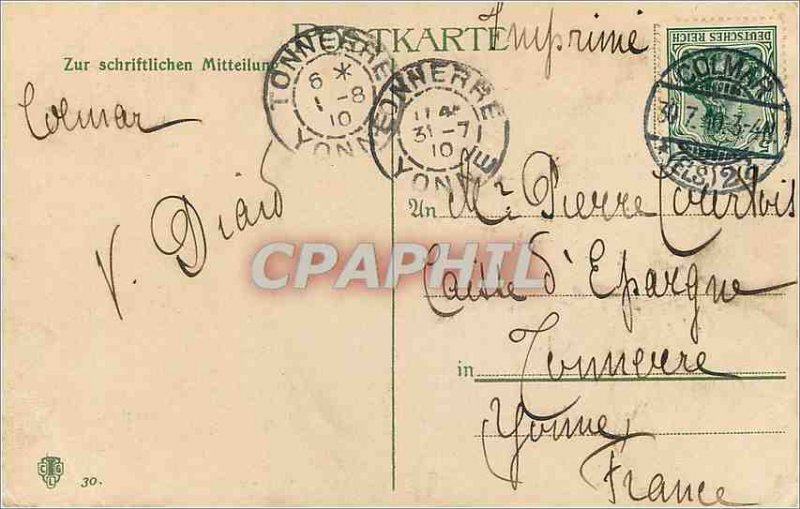 POSTKARTE
Imprimé
Zur schriftlichen Mitteilung
Colmar
V. Diard
TONNERRE
6 *
1 -8
10
YONNE
TONNERRE
31 -7
10
YONNE
DEUTSCHES REICH
COLMAR
30.7.10.3-4N
* (ELS) 2
An Mr Pierre Courtois
Caisse d'Epargne
in Tonnerre
Yonne
France
CPAPHIL
C G L
30.